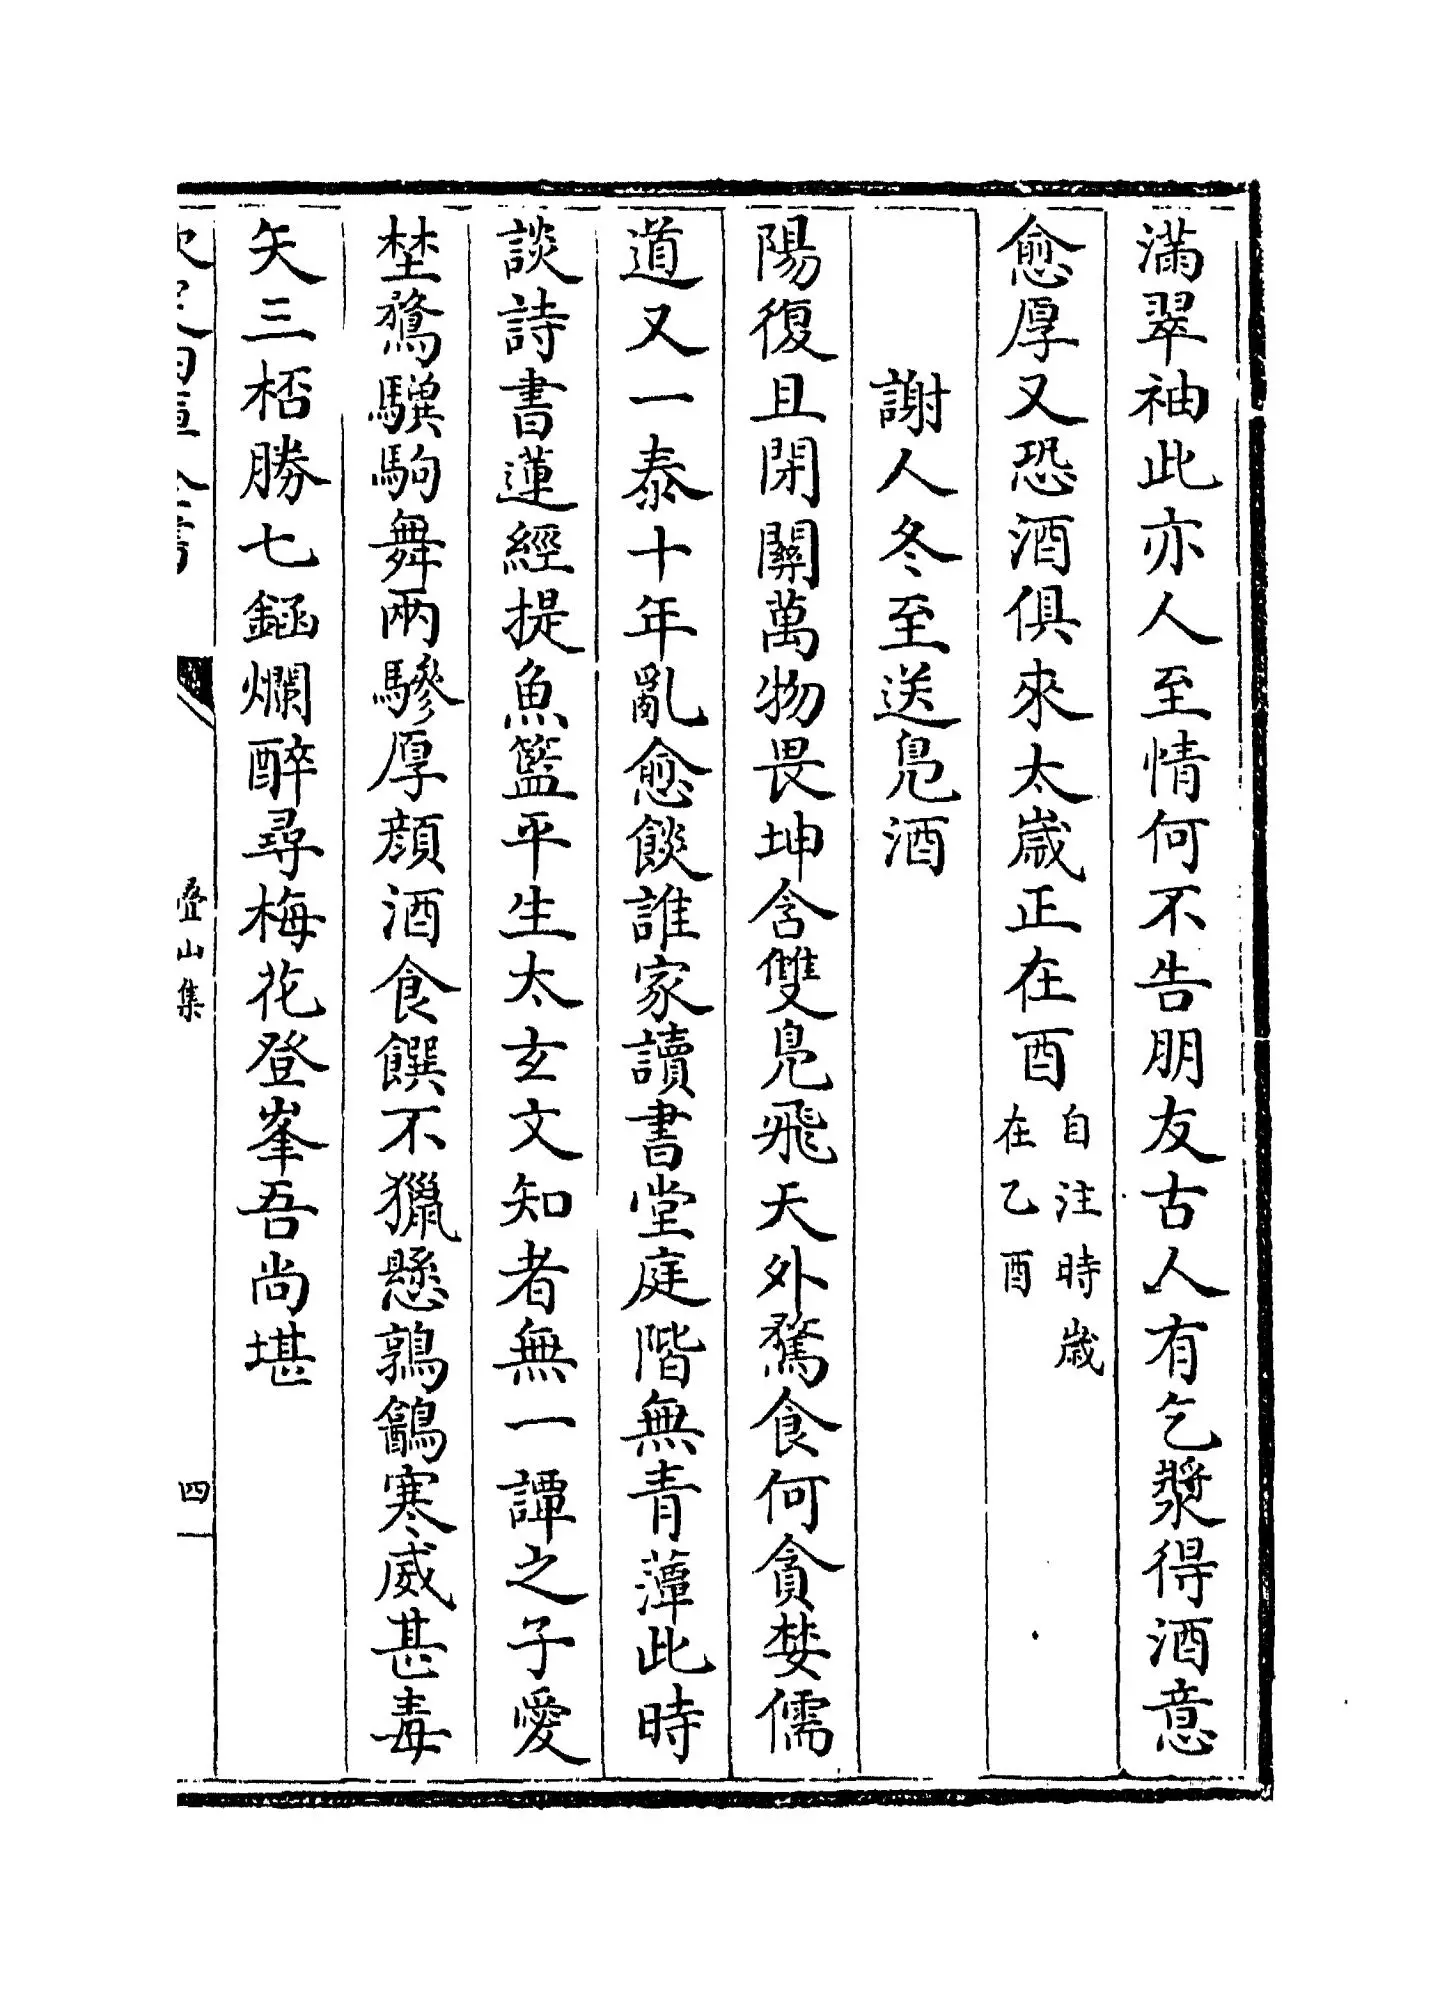 滿翠袖此亦人至情何不告朋友古人有乞漿得酒意
愈厚又恐酒俱來太歲正在酉自注時歲在乙酉
謝人冬至送鳬酒
陽復且閉關萬物畏坤含雙鳬飛天外鶩食何貪婪儒
道又一泰十年亂愈餤誰家讀書堂庭階無青藫此時
談詩書蓮經提魚籃平生太玄文知者無一譚之子愛
埜鶩驥駒舞兩驂厚顔酒食饌不獵懸鶉䳺寒威甚毒
矢三桮勝七䤴爛醉尋梅花登峯吾尚堪
欽定四庫全書
疊山集
四